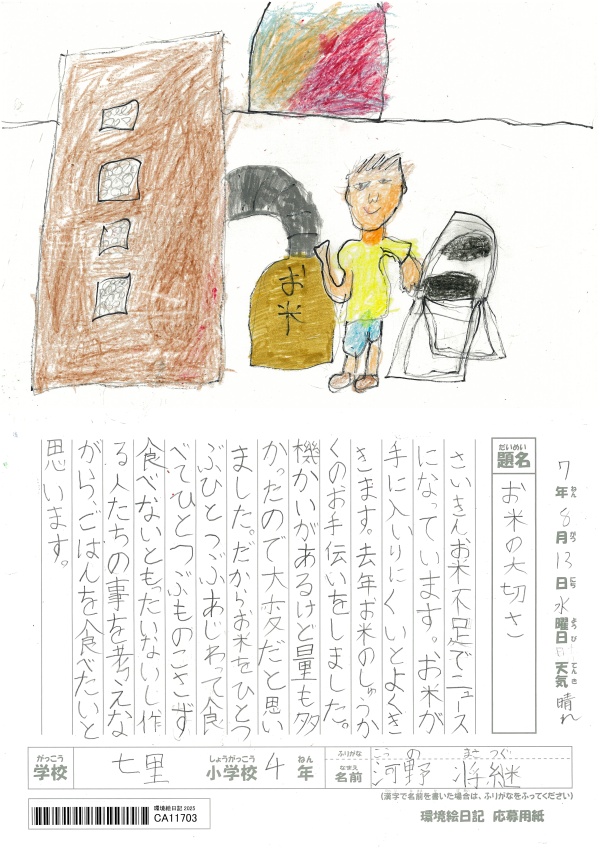 お米
7年8月13日水曜日天気晴れ
ねん がつ にち ようび てんき
だいめい
題名
お米の大切さ
さいきんお米不足でニュース
になっています。お米が
手に入いりにくいとよくき
きます。去年お米のしゅうか
くのお手伝いをしました。
機かいがあるけど量も多
かったので大変だと思い
ました。だからお米をひとつ
ぶひとつぶあじわって食
べてひとつぶものこさず
食べないともったいないし作
る人たちの事を考えな
がら、ごはんを食べたいと
思います。
がっこう しょうがっこう ねん ふりがな こうの まさつぐ
学校 七里 小学校 4年 なまえ 名前 河野 将継
(漢字で名前を書いた場合は、ふりがなをふってください)
環境絵日記 2025
CA11703
環境絵日記 応募用紙